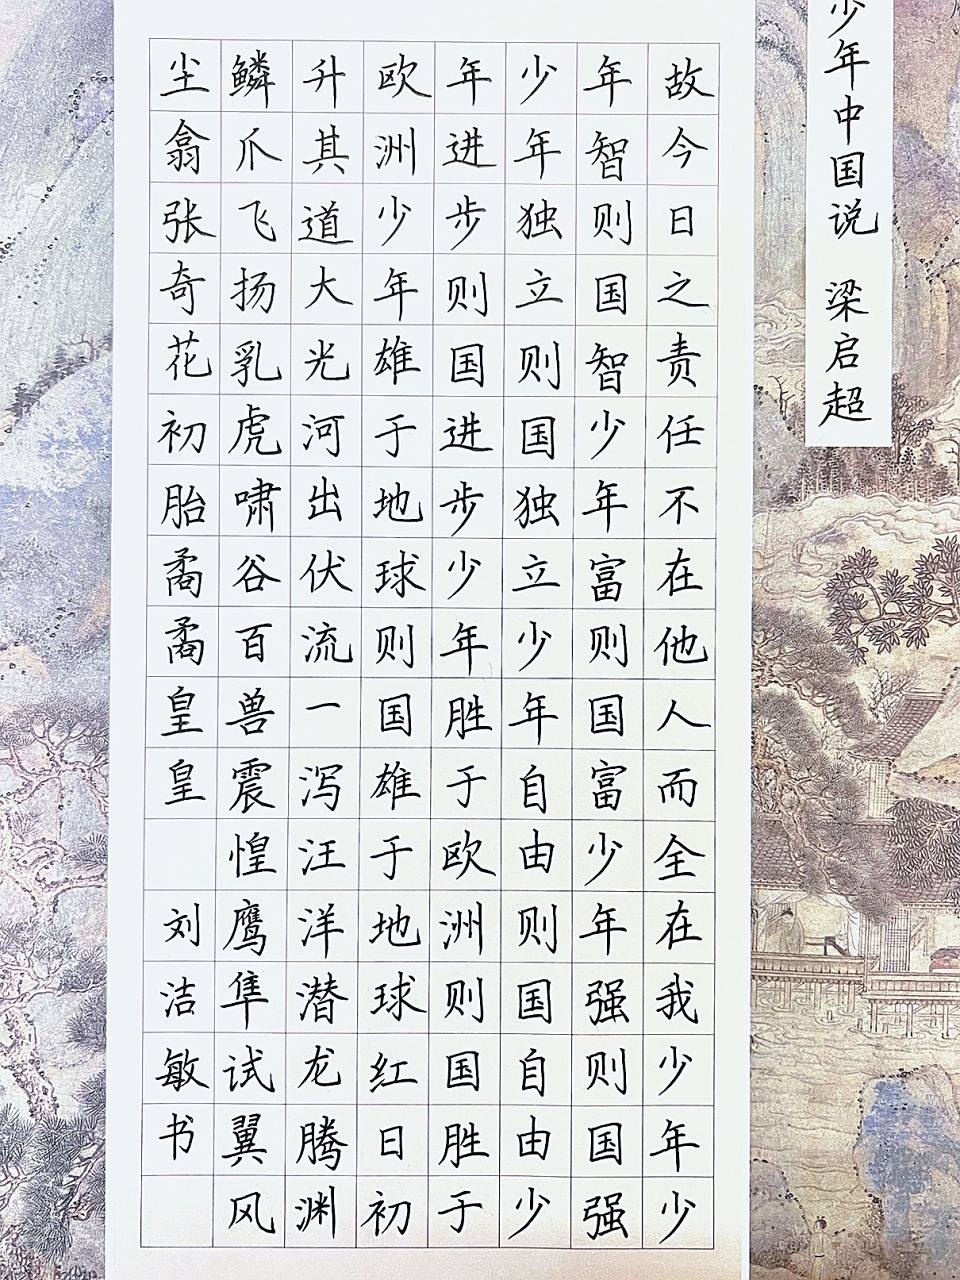 少年中国说 梁启超
故今日之责任不在他人而全在我少年少
年智则国智少年富则国富少年强则国强
少年独立则国独立少年自由则国自由少
年进步则国进步少年胜于欧洲则国胜于
欧洲少年雄于地球则国雄于地球红日初
升其道大光河出伏流一泻汪洋潜龙腾渊
鳞爪飞扬乳虎啸谷百兽震惶鹰隼试翼风
尘翕张奇花初胎矞矞皇皇 刘洁敏书